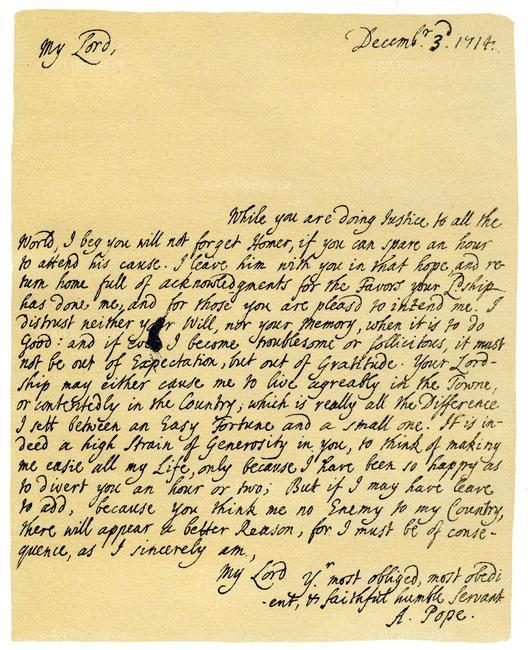 Decemb.r 3.d 1714.
My Lord,
While you are doing Justice to all the
World, I beg you will not forget Homer, if you can spare an hour
to attend his cause. I leave him with you in that hope, and re-
turn home full of acknowledgments for the Favors your Ldship
has done me, and for those you are pleas'd to intend me. I
distrust neither your Will, nor your Memory, when it is to do
Good: and if ever I become troublesome or sollicitous, it must
not be out of Expectation, but out of Gratitude. Your Lord-
ship may either cause me to live agreably in the Towne,
or contentedly in the Country; which is really all the Difference
I sett between an Easy Fortune and a small one. It is in-
deed a high Strain of Generosity in you, to think of making
me easie all my Life, only because I have been so happy as
to divert you an hour or two; But if I may have leave
to add, because you think me no Enemy to my Country,
there will appear a better Reason, for I must be of conse-
quence, as I sincerely am,
My Lord Y.r most obliged, most obedi
-ent, & faithful humble Servant
A. Pope.